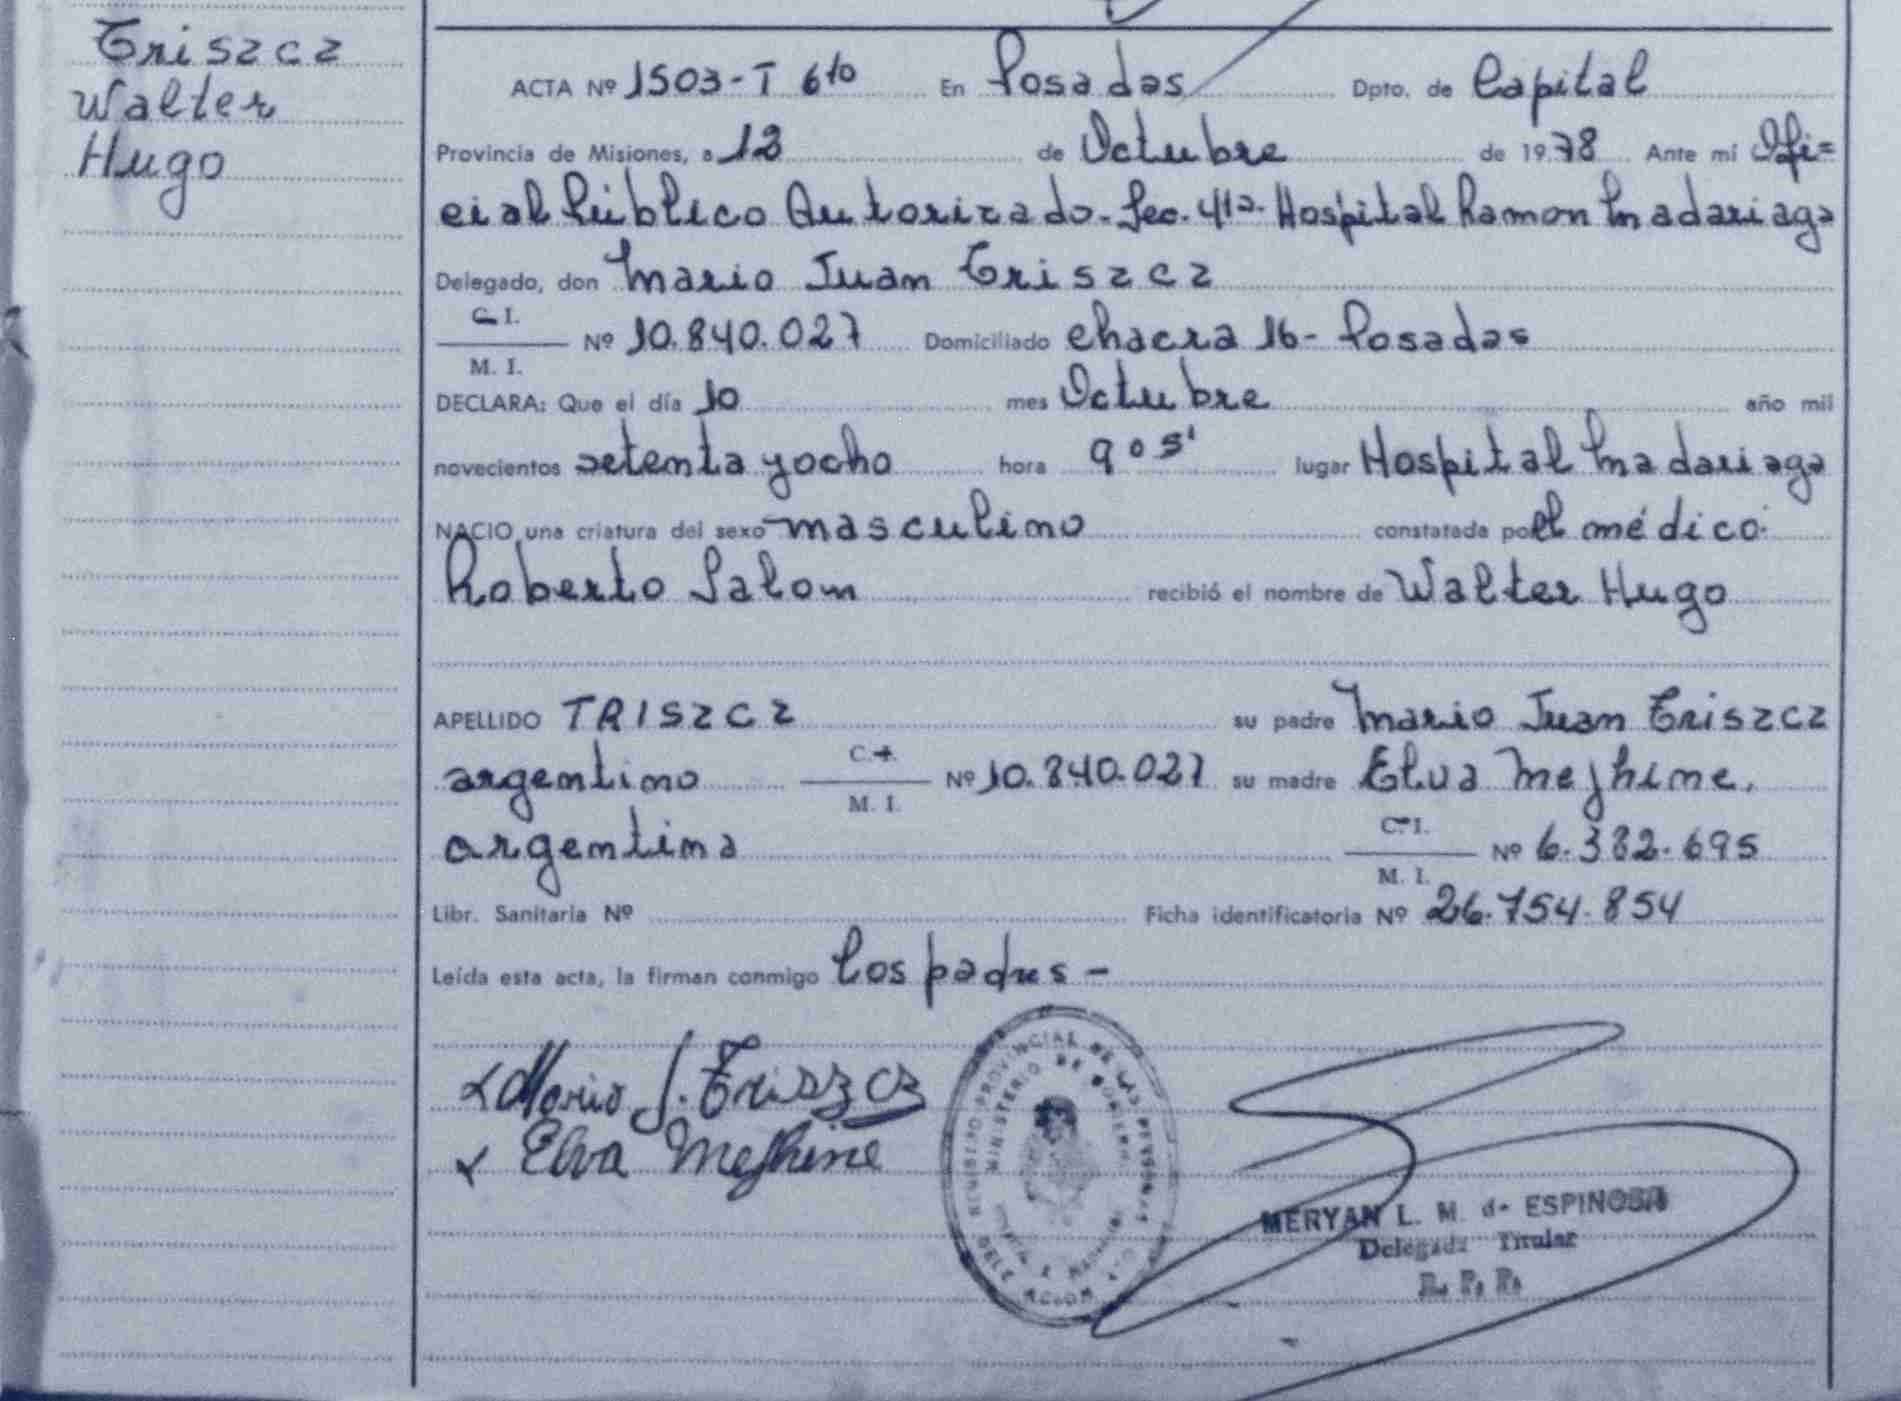 Triszcz
Walter
Hugo
ACTA Nº 1503-T 6to En Posadas Dpto. de Capital
Provincia de Misiones, a 12 de Octubre de 1978 Ante mí Ofi=
cial Público Autorizado. Sec. 4ta. Hospital Ramon Madariaga
Delegado, don Mario Juan Triszcz
C. I.
Nº 10.840.027 Domiciliado chacra 16- Posadas
M. I.
DECLARA: Que el día 10 mes Octubre año mil
novecientos setenta y ocho hora 9 05' lugar Hospital Madariaga
NACIO una criatura del sexo masculino constatada por el médico:
Roberto Salom recibió el nombre de Walter Hugo
APELLIDO TRISZCZ su padre Mario Juan Triszcz
argentino C. I. Nº 10.840.027 su madre Elva Mejhine,
M. I.
argentina C. I. Nº 6.382.695
M. I.
Libr. Sanitaria Nº Ficha identificatoria Nº 26.754.854
Leída esta acta, la firman conmigo los padres -
Mario J. Triszcz
Elva Mejhine
REGISTRO PROVINCIAL DE LAS PERSONAS
MINISTERIO DE GOBIERNO
DELEGACION
MERYAN L. M. de ESPINOSA
Delegada Titular
R. P. P.